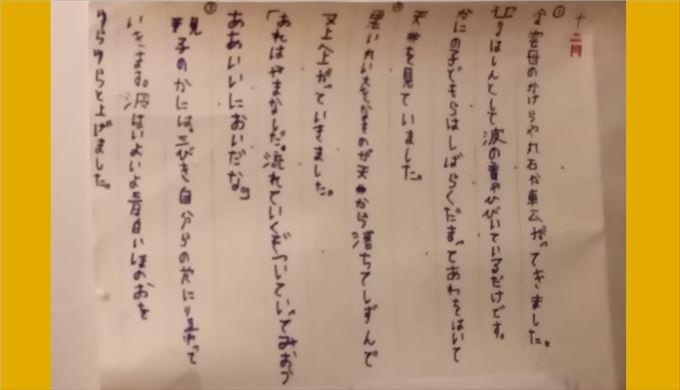 十二月
①
金雲母のかけらや丸石が転がってきました。
はしんとして波の音がひびいているだけです。
かにの子どもらはしばらくだまってあわをはいて
天井を見ていました。
②
黒いれい大きなものが天井から落ちてしずんで
又上へ上がっていきました。
「あれはやまなしだ。流れていくぞ。ついていってみよう
ああいいにおいだな。」
③
親子のかには三びき自分らの穴に帰って
いきます。波はいよいよ青白いほのおを
ゆらゆらと上げました。